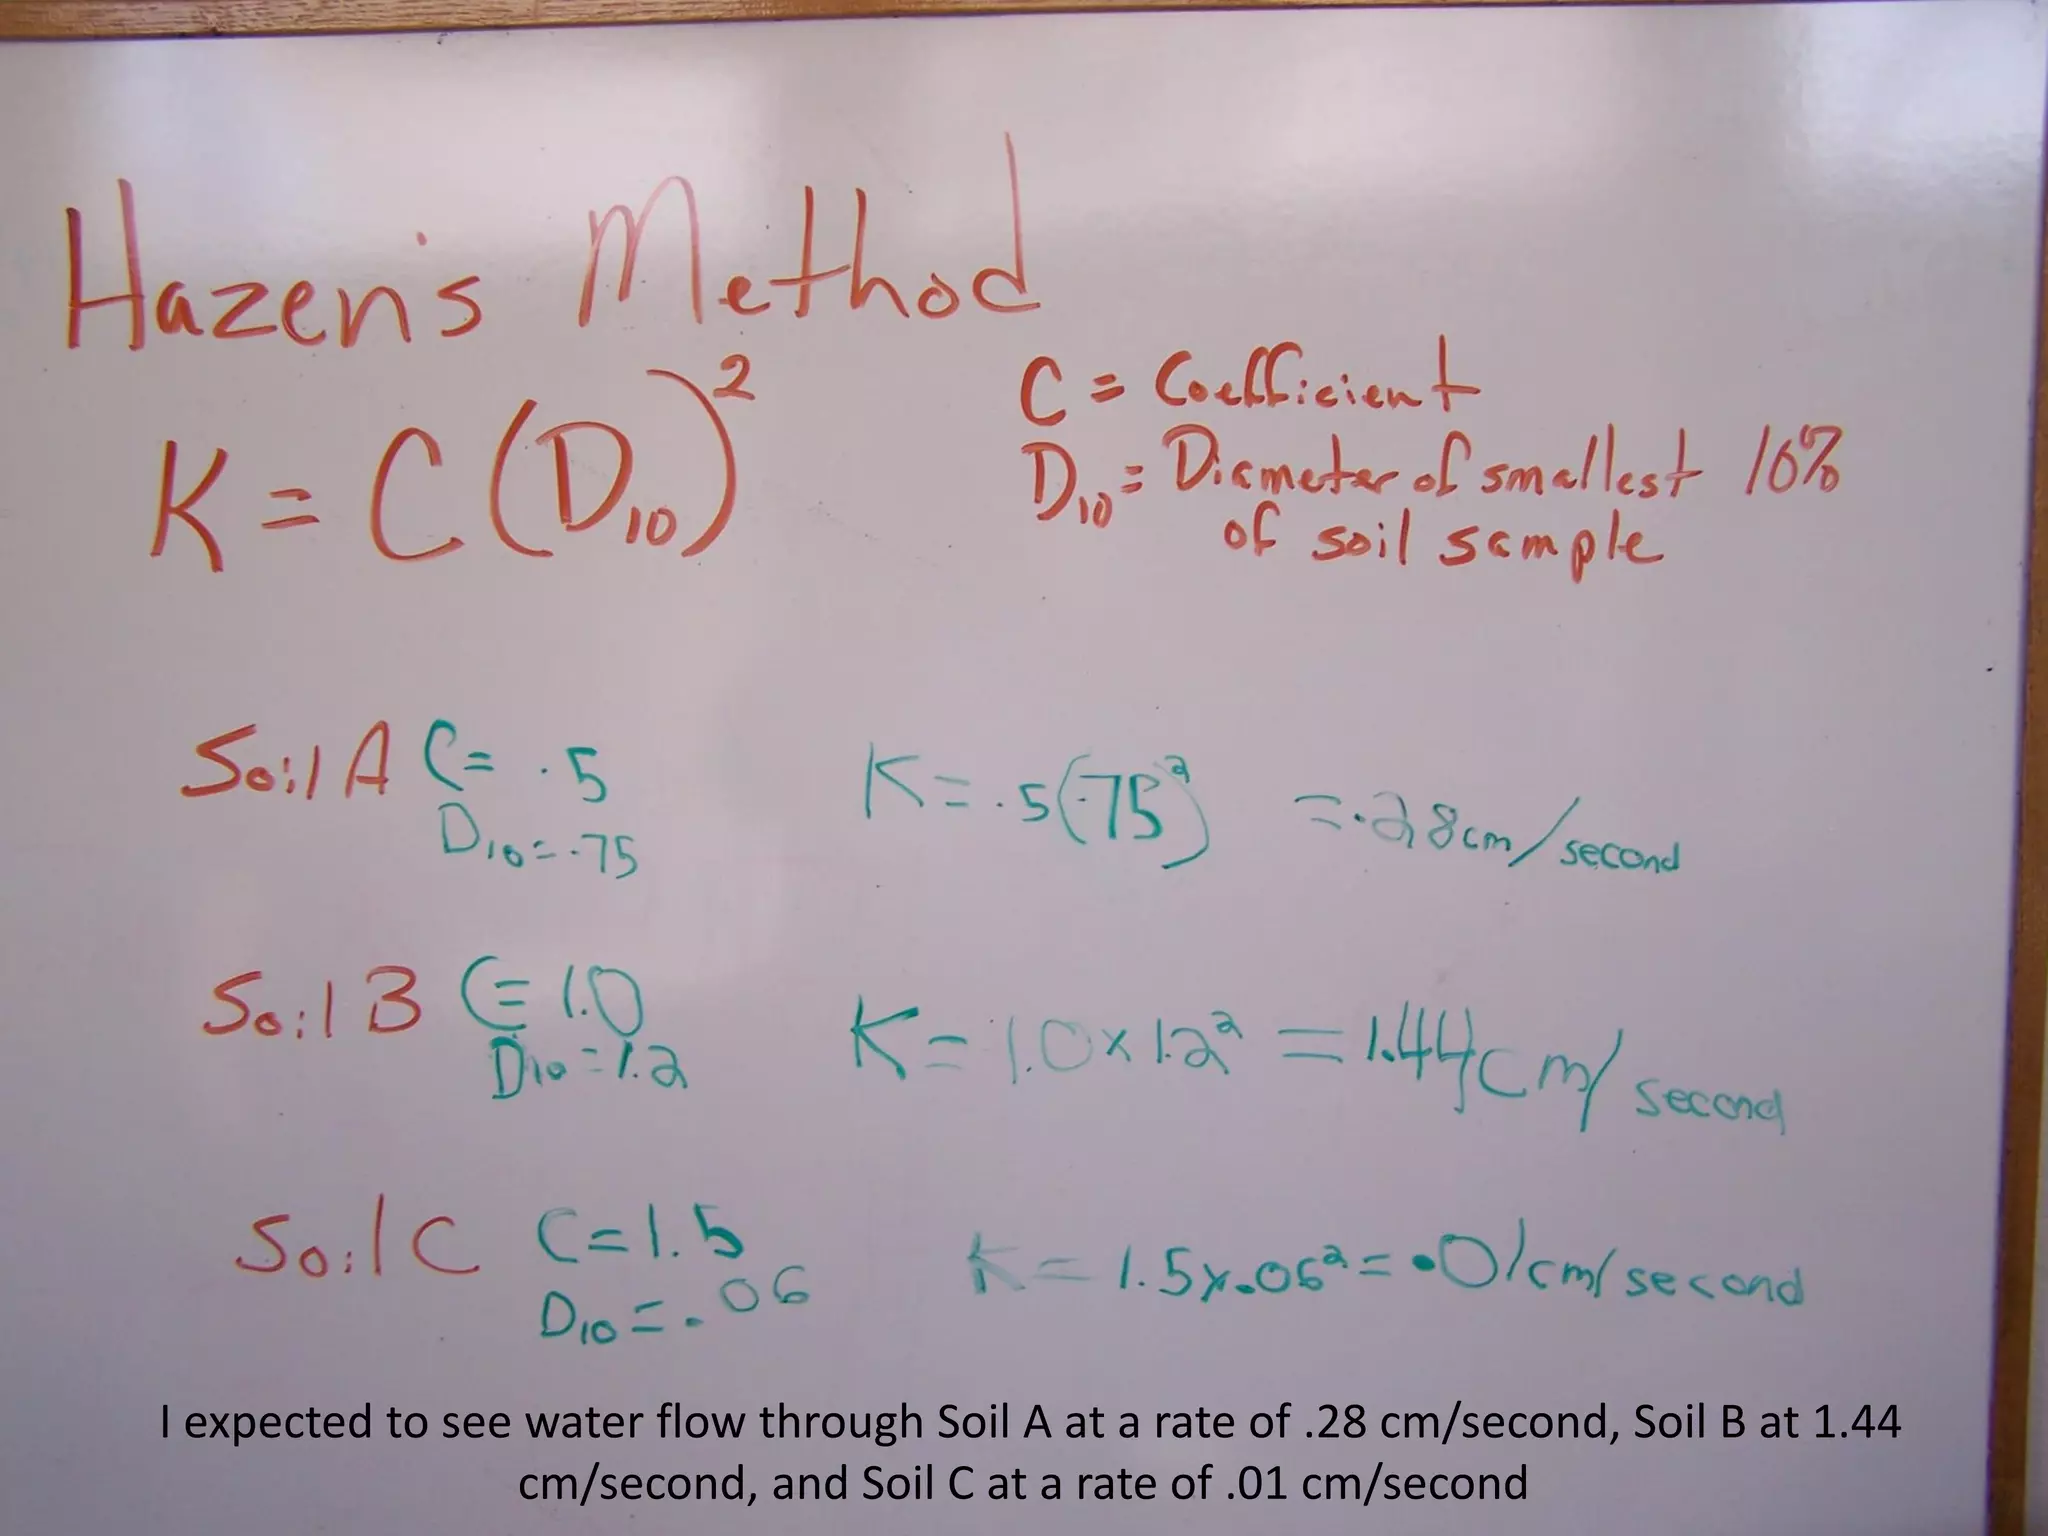 Hazen's Method
K = C(D₁₀)²
C = Coefficient
D₁₀ = Diameter of smallest 10%
of soil sample
Soil A C= .5
D₁₀=.75
K= .5(.75²) =.28cm/second
Soil B C=1.0
D₁₀=1.2
K= 1.0x1.2² = 1.44cm/second
Soil C C=1.5
D₁₀=.06
K= 1.5x.06²= .01cm/second
I expected to see water flow through Soil A at a rate of .28 cm/second, Soil B at 1.44
cm/second, and Soil C at a rate of .01 cm/second